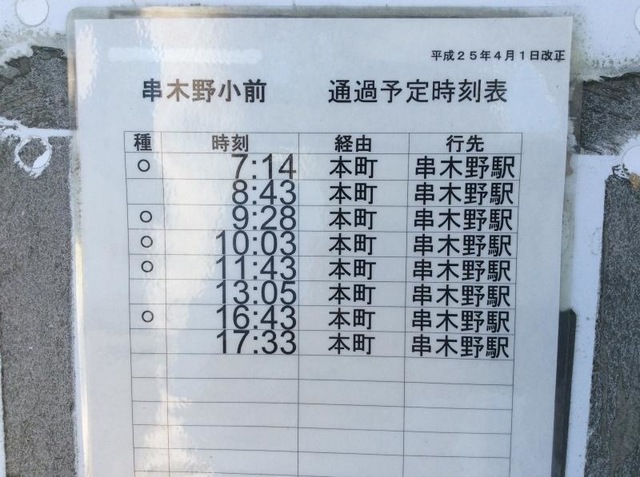 平成２５年４月１日改正
串木野小前 通過予定時刻表
種 時刻 経由 行先
○ 7:14 本町 串木野駅
8:43 本町 串木野駅
○ 9:28 本町 串木野駅
○ 10:03 本町 串木野駅
○ 11:43 本町 串木野駅
13:05 本町 串木野駅
○ 16:43 本町 串木野駅
17:33 本町 串木野駅